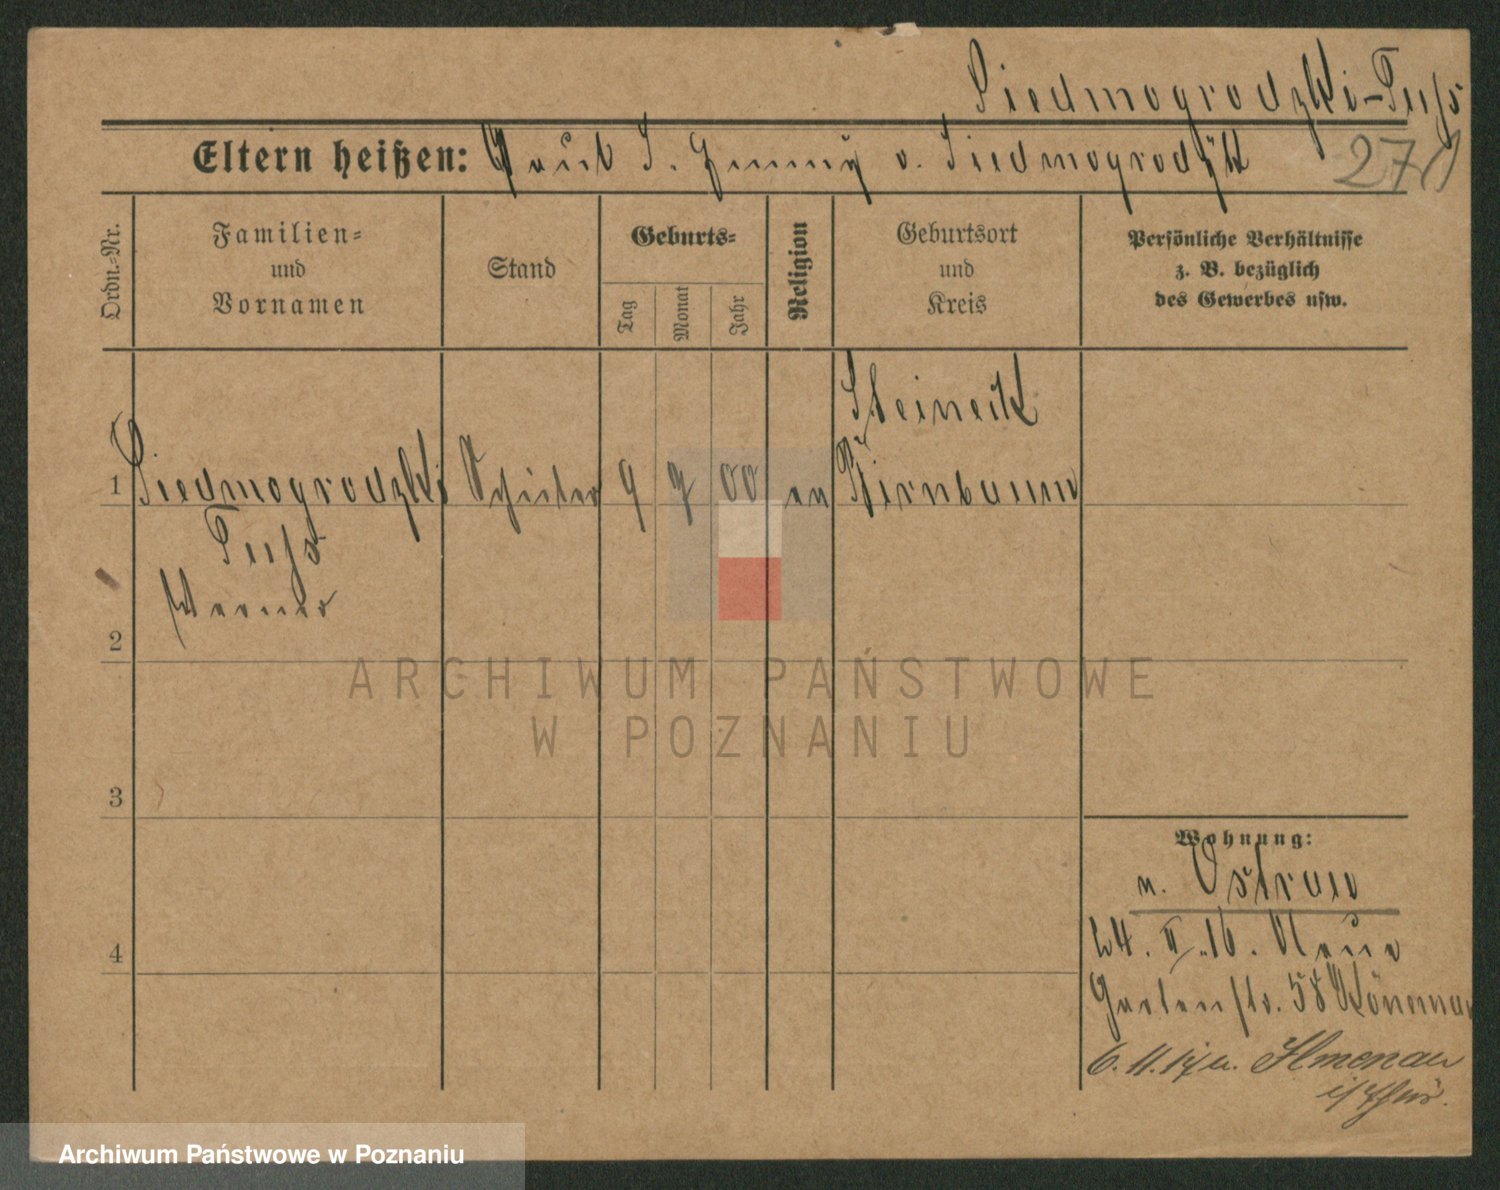 Siedmogrodzki-Fuss
270
Eltern heißen: Paul S. Jenny v. Siedmogrodzki
Ordn.-Nr.
Familien-
und
Vornamen
Stand
Geburts-
Tag
Monat
Jahr
Religion
Geburtsort
und
Kreis
Persönliche Verhältnisse
z. B. bezüglich
des Gewerbes usw.
Steineck
1 Siedmogrodzki Schüler 9 9 00 ev Birnbaum
Fuss
Werner
2
ARCHIWUM PAŃSTWOWE
W POZNANIU
3
Wohnung:
n. Ostrau
4
24. II. 16. Neue
Gartenstr. 58
6. 11. 17 n. Ilmenau
i/Thür.
Archiwum Państwowe w Poznaniu